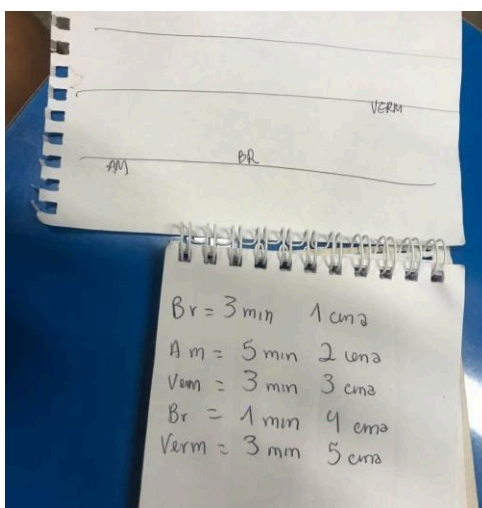 VERM
AM BR
Br = 3 min 1 cena
Am = 5 min 2 cena
Verm = 3 min 3 cena
Br = 1 min 4 cena
Verm = 3 min 5 cena